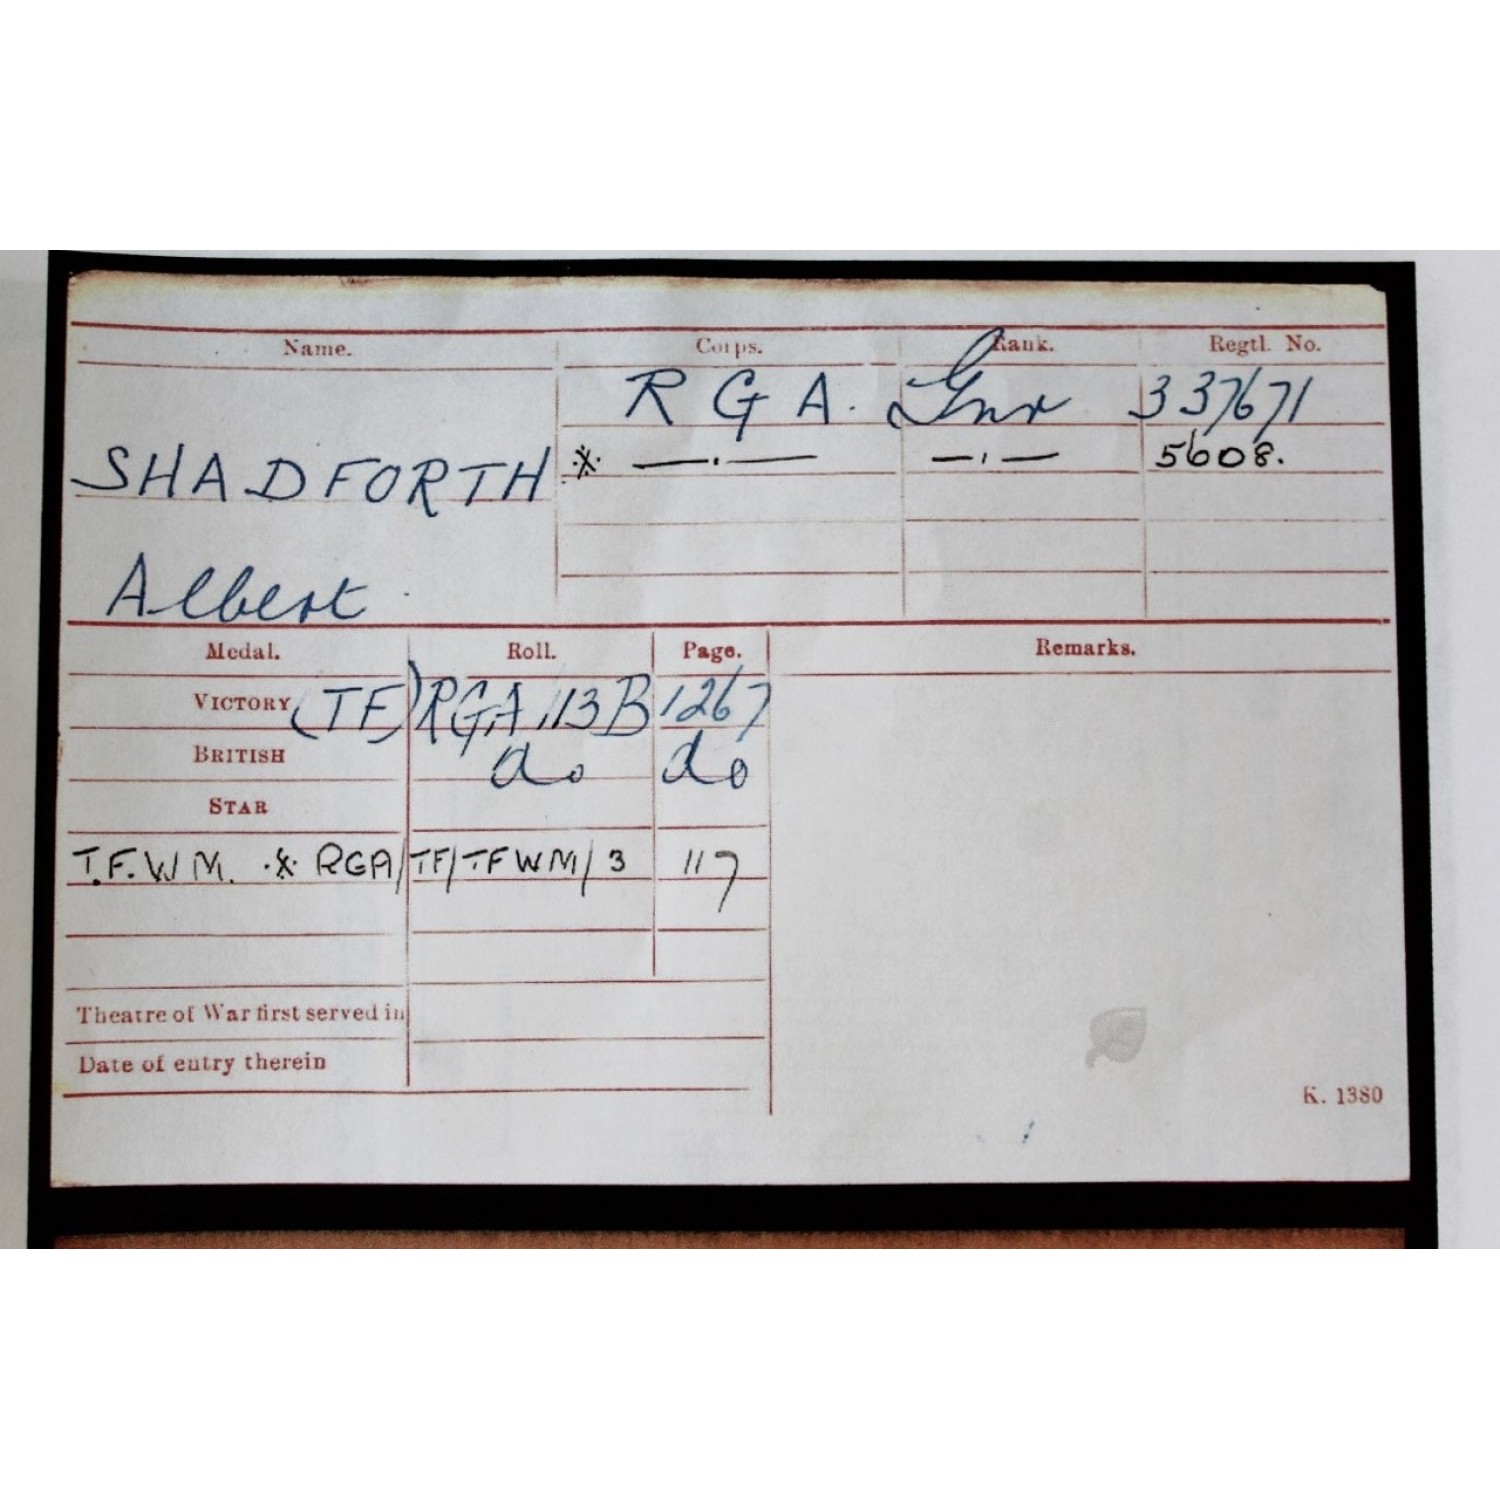 Name. Corps. Rank. Regtl. No.
R G A. Gnr 337671
SHADFORTH ※ —.— —.— 5608.
Albert
Medal. Roll. Page. Remarks.
VICTORY (TF) RGA 113B 1267
BRITISH do do
STAR
T.F.W.M. ※ RGA/TF/TFWM/3 117
Theatre of War first served in
Date of entry therein
K. 1380